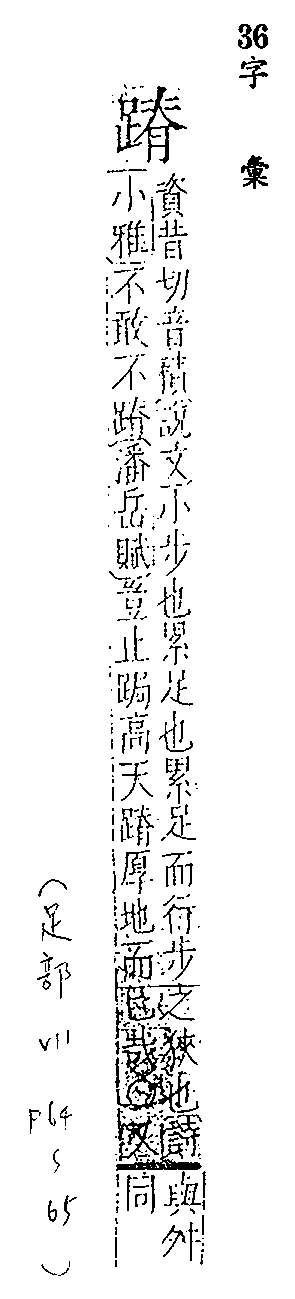 36 字彙
蹐
資昔切音積說文小步也累足也累足而行步之狹也詩
小雅不敢不蹐潘岳賦豈止跼高天蹐厚地而已哉○又
與舛
同
(足部 VII P64 ~ 65)